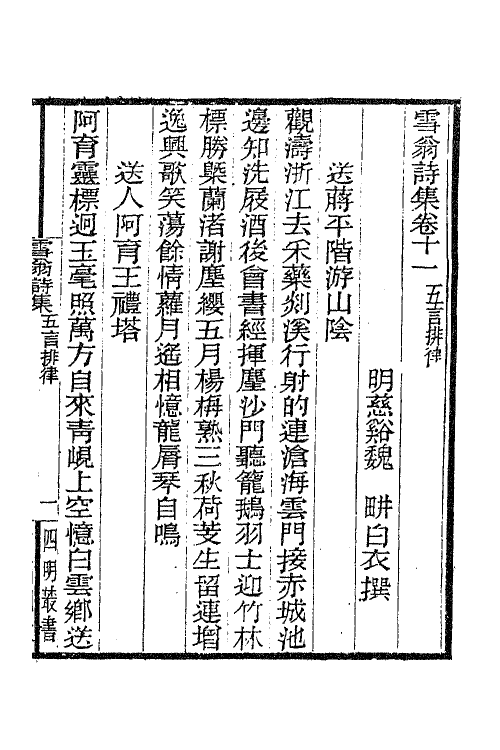 雪翁詩集卷十一 五言排律
明慈谿魏 畊白衣撰
送蔣平階游山陰
觀濤浙江去禾藥剡溪行射的連滄海雲門接赤城池
邊知洗屐酒後會書經揮麈沙門聽籠鵝羽士迎竹林
標勝槩蘭渚謝塵纓五月楊梅熟三秋荷芰生留連增
逸興歌笑蕩餘情蘿月遙相憶龍脣琴自鳴
送人阿育王禮塔
阿育靈標迥玉毫照萬方自來靑峴上空憶白雲鄉送
雪翁詩集 五言排律 一 四明叢書